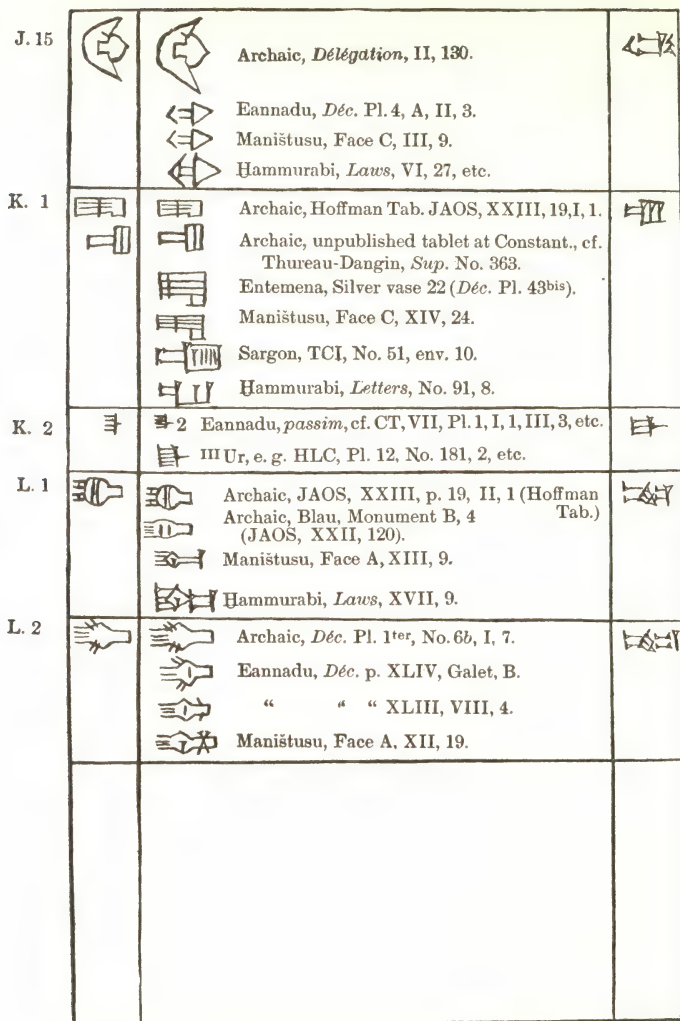 J. 15
Archaic, Délégation, II, 130.
Eannadu, Déc. Pl. 4, A, II, 3.
Maništusu, Face C, III, 9.
Ḫammurabi, Laws, VI, 27, etc.
K. 1
Archaic, Hoffman Tab. JAOS, XXIII, 19, I, 1.
Archaic, unpublished tablet at Constant., cf.
Thureau-Dangin, Sup. No. 363.
Entemena, Silver vase 22 (Déc. Pl. 43bis).
Maništusu, Face C, XIV, 24.
Sargon, TCI, No. 51, env. 10.
Ḫammurabi, Letters, No. 91, 8.
K. 2
2 Eannadu, passim, cf. CT, VII, Pl. 1, I, 1, III, 3, etc.
III Ur, e. g. HLC, Pl. 12, No. 181, 2, etc.
L. 1
Archaic, JAOS, XXIII, p. 19, II, 1 (Hoffman Tab.)
Archaic, Blau, Monument B, 4
(JAOS, XXII, 120).
Maništusu, Face A, XIII, 9.
Ḫammurabi, Laws, XVII, 9.
L. 2
Archaic, Déc. Pl. 1ter, No. 6b, I, 7.
Eannadu, Déc. p. XLIV, Galet, B.
“ “ “ XLIII, VIII, 4.
Maništusu, Face A, XII, 19.